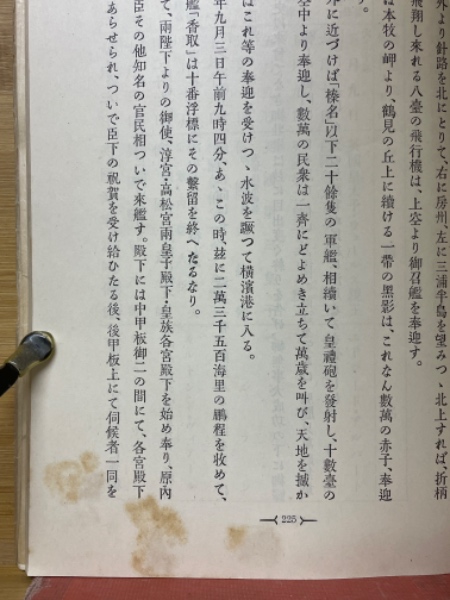 外より針路を北にとりて、右に房州、左に三浦半島を望みつゝ北上すれば、折柄
飛翔し来れる八臺の飛行機は、上空より御召艦を奉迎す。
は本牧の岬より、鶴見の丘上に續ける一帶の黑影は、これなん數萬の赤子、奉迎
。
外に近づけば「榛名」以下二十餘隻の軍艦、相續いて皇禮砲を發射し、十數臺の
空中より奉迎し、數萬の民衆は一齊にどよめき立ちて萬歲を叫び、天地を撼か
はこれ等の奉迎を受けつゝ水波を蹴つて橫濱港に入る。
年九月三日午前九時四分、あゝこの時、玆に二萬三千五百海里の鵬程を收めて、
艦「香取」は十番浮標にその繋留を終へたるなり。
て、兩陛下よりの御使、淳宮・高松宮兩皇子殿下・皇族各宮殿下を始め奉り、原內
臣その他知名の官民相ついで來艦す。殿下には中甲板御二の間にて、各宮殿下
あらせられ、ついで臣下の祝賀を受け給ひたる後、後甲板上にて伺候者一同を
225